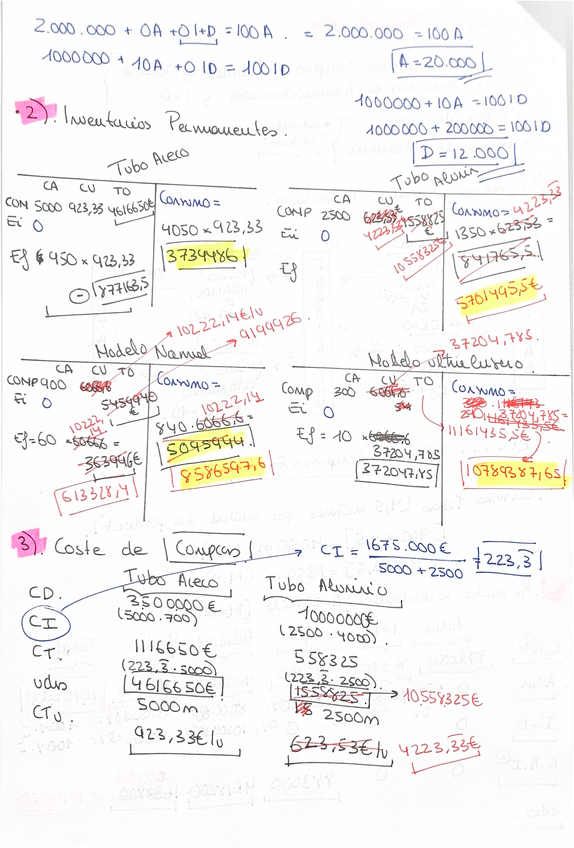 2.000.000 + 0A + 0 I+D = 100A . = 2.000.000 = 100A
1000000 + 10A + 0 ID = 100 ID
A = 20.000
1000000 + 10A = 100 ID
1000000 + 200000 = 100 ID
D = 12.000
2). Inventarios Permanentes.
Tubo Aceco
CA CU TO
COM 5000 923,33 4616650€
Ei 0
Ef 950 × 923,33
- 877163,5
Consumo =
4050 × 923,33
3739486
Tubo Alumin
CA CU TO
COMP 2500 623,53€ 1558825 €
4223,33
10558325€
Ei 0
Ef
Consumo = 4223,33
1350 × 623,53 =
841765,5
5701495,5€
Modelo Normal
10222,14€/u
9199926
CA CU TO
COMP 900 6066,6 5459940
Ei 0
10222,14
Ef = 60 × 6066,6 =
363996€
613328,4
Consumo =
10222,14
840 · 6066,6 =
5095944
8586597,6
Modelo ultralujoso.
37204,785
CA CU TO
Comp 300
Ei 0
Ef = 10 ×
37204,785
372047,85
Consumo =
290 · 37204,785 =
11161435,5€
10789387,65
3). Coste de Compras
CI = 1675.000€ / 5000 + 2500 = 223,3
Tubo Aceco Tubo Aluminio
CD. 3500000€ 10000000€
(5000·700) (2500·4000)
CI
CT. 1116650€ 558325
(223,3·5000) (223,3·2500)
4616650€ 1558825 10558325€
udes 5000m 2500m
CTu. 923,33€/u 623,53€/u 4223,33€